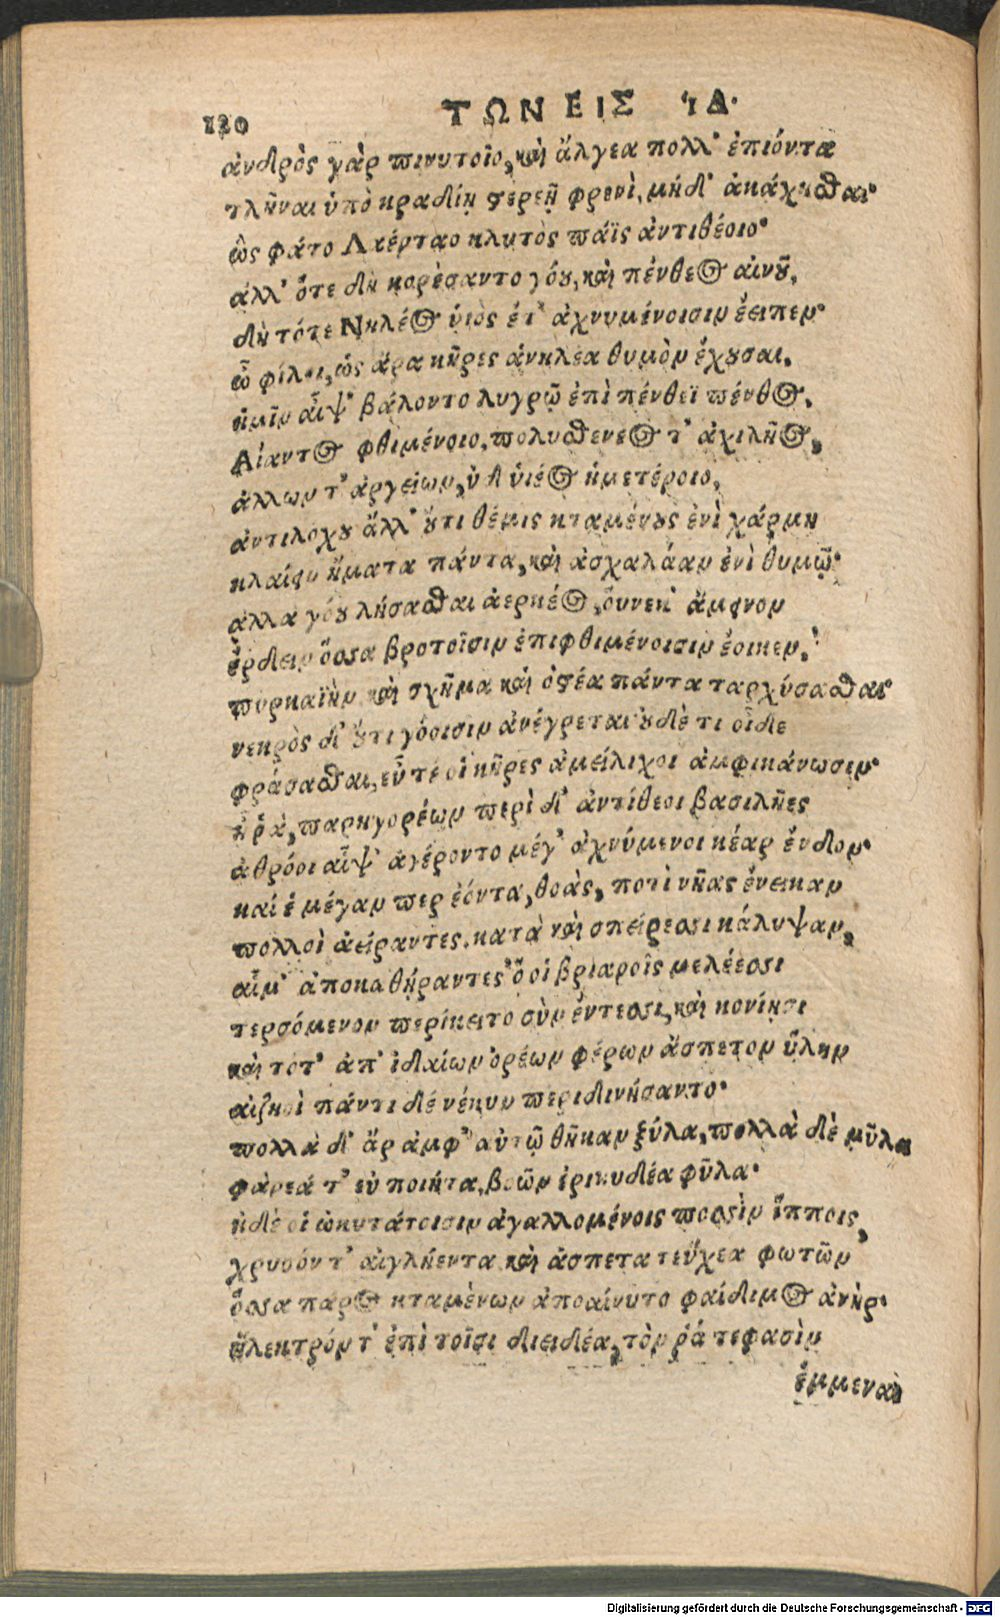 120
ΤΩΝ ΕΙΣ ΊΔ·
ἀνδρὸς γὰρ πινυτοῖο, καὶ ἄλγεα πολλ' ἐπιόντα
τλῆναι ὑπὸ κραδίῃ στερεῇ φρενὶ, μήδ' ἀκάχησθαι·
ὣς φάτο Λαέρταο κλυτὸς πάϊς ἀντιθέοιο·
ἀλλ' ὅτε δὴ κορὲσαντο γόου, καὶ πένθεος αἰνοῦ,
δὴ τότε Νηλέος ὑιὸς ἔτ' ἀχνυμένοισιν ἔειπεν·
ὦ φίλοι, ὡς ἄρα κῆρες ἀνηλέα θυμὸν ἔχουσαι,
ἡμῖν αἶψ' βάλοντο λυγρῷ ἐπὶ πένθεϊ πένθος,
Αἴαντος φθιμένοιο, πολυσθενεος τ' ἀχιλῆος,
ἄλλων τ' ἀργείων, ὑδ ὑιέος ἡμετέροιο,
ἀντιλόχου ἄλλ' οὔτι θέμις κταμένους ἐνὶ χάρμῃ
κλαίειν ἤματα πάντα, καὶ ἀσχαλάαν ἐνὶ θυμῷ·
ἀλλα γόου λήσασθαι ἀερκέος, οὕνεκ' ἄμεινον
ἔρδειν ὅσσα βροτοῖσιν ἐπιφθιμένοισιν ἔοικεν,
πυρκαϊὴν καὶ σχῆμα καὶ ὀστέα πάντα ταρχύσασθαι·
νεκρὸς δ' οὔτι γόοισιν ἀνέγρεται οὐδὲ τι οἶδε
φράσασθαι, εὖτέ οἱ κῆρες ἀμείλιχοι ἀμφικάνωσιν·
ἦ ῥὰ, παρηγορέων περὶ δ' ἀντίθεοι βασιλῆες
ἀθρόοι αἶψ' ἀγέροντο μέγ' ἀχνύμενοι κέαρ ἔνδον·
καί ἑ μέγαν περ ἐόντα, θοὰς, ποτὶ νῆας ἔνεικαν
πολλοὶ ἀείραντες. κατὰ καὶ σπείρεσσι κάλυψαν,
αἷμ' ἀποκαθήραντες ὅ οἱ βριαροῖς μελέεσσι
τερσόμενον περίκειτο σὺν ἔντεσσι, καὶ κονίῃσι
καὶ τότ' ἀπ' ἰδαίων ὀρέων φέρων ἄσπετον ὕλην
αἰζηοὶ πάντι δέ νέκυν περιδινήσαντο·
πολλὰ δ' ἄρ ἀμφ' αὐτῷ θῆκαν ξύλα, πολλὰ δὲ μῦλα
φάρεά τ' εὐ ποιήτα, βοῶν ἐρικυδέα φῦλα·
ἠδὲ οἱ ὠκυτάτοισιν ἀγαλλομένοις ποσσὶν ἵπποις,
χρυσόν τ' αἰγλήεντα καὶ ἄσπετα τεύχεα φωτῶν
ὅσσα πάρος κταμὲνων ἀποαίνυτο φαίδιμος ἀνὴρ·
ἤλεκτρόν τ' ἐπὶ τοῖσι διειδέα, τὸν ῥά τε φασὶν
ἔμμεναι
Digitalisierung gefördert durch die Deutsche Forschungsgemeinschaft - DFG